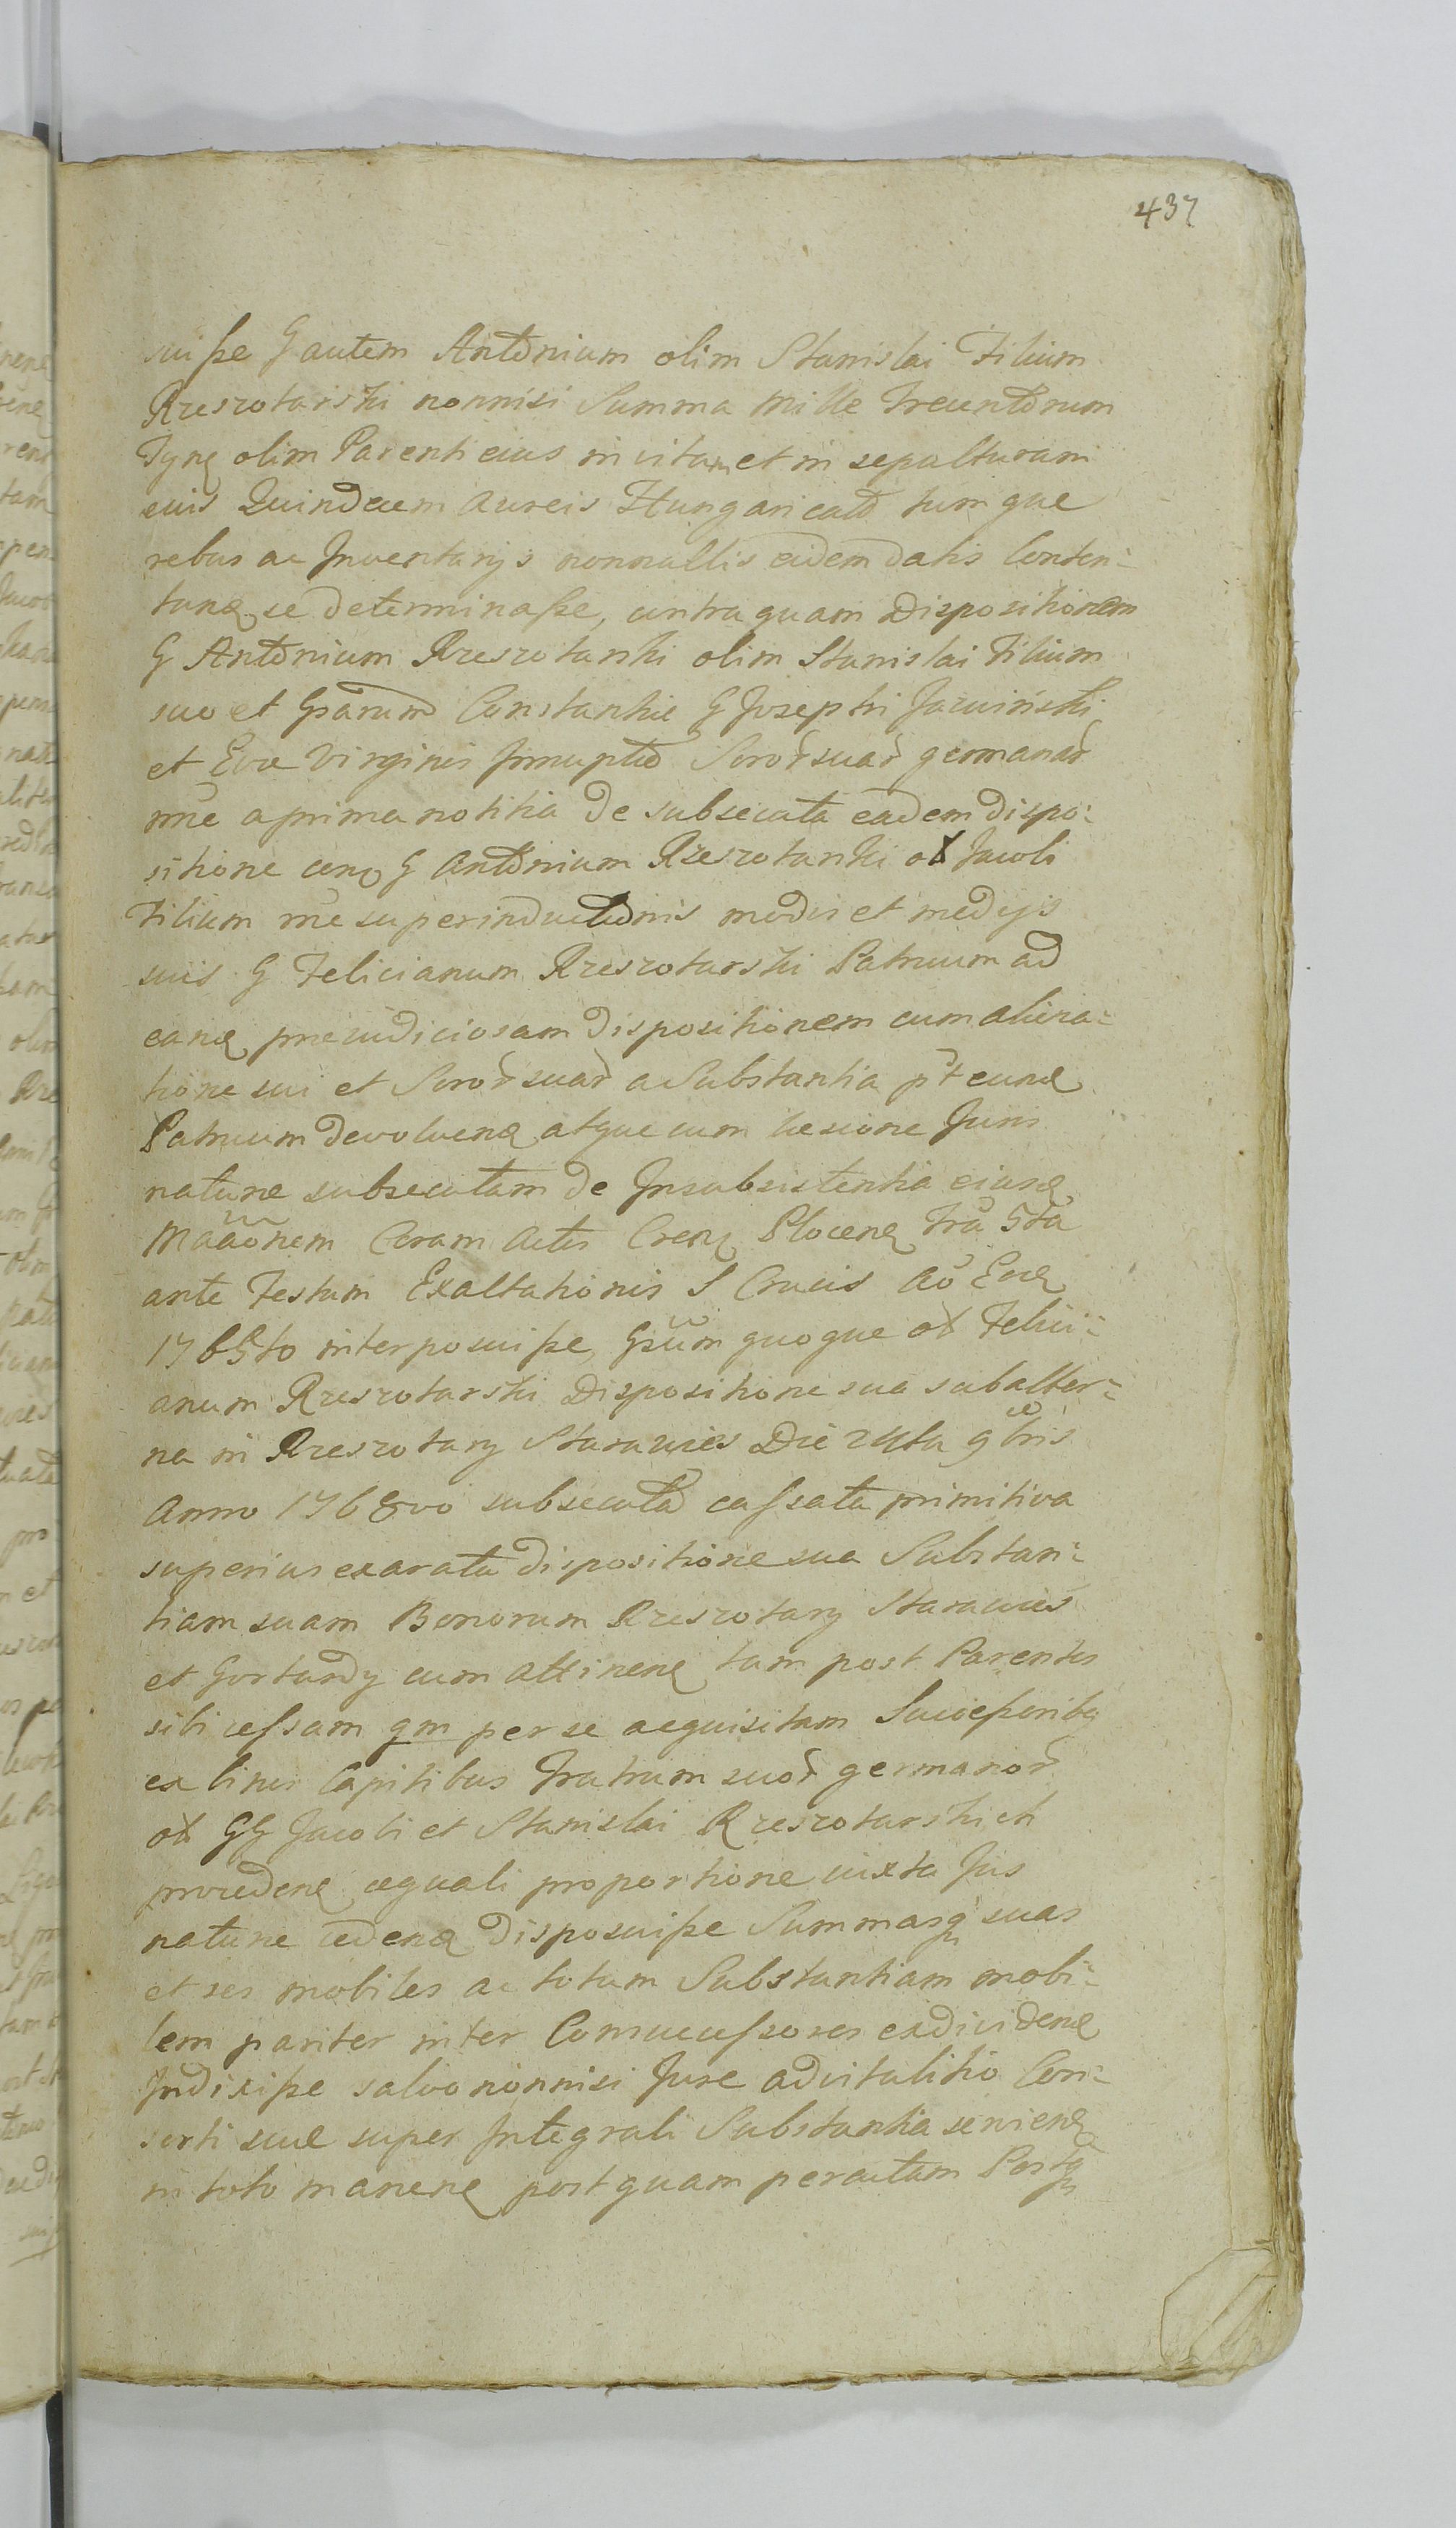 437
suisse G autem Antonium olim Stanislai Filium
Rzeszotarski nonnisi Summa Mille Trecentorum
Tynf olim Parenti eius in vitam et in sepulturam
eius Quindecem Aureis Hungaricald tumque
rebus ac Inventarijs nonnullis eidem datis Conten-
tand se determinasse, contra quam Dispositionem
G Antonium Rzeszotarski olim Stanislai Filium
suo et Gsarum Constantiæ G Josephi Jaruiński
et Evæ Virginis Innuptæ Soror suar germanar
nne a prima notitia de subsecuta eadem dispo-
sitione cong G Antonium Rzeszotarski ol Jacobi
Filium nne superinductionis modis et medijs
suis G Felicianum Rzeszotarski Patruum ad
eand preiudiciosam dispositionem cum aliena-
tione sui et Soror suar a Substantia pt eund
Patruum devolvend atque cum læsione Juris
naturæ subsecutam de Insubsistentia eiusd
Maãonem Coram Actis Cren Plocen fra 5ta
ante Festum Exaltationis S Crucis Ao Even
1765to interposuisse, Gsum quoque ol Felici-
anum Rzeszotarski Dispositione sua subalter-
na in Rzeszotary Starawies Die 24ta 9bris
Anno 1768vo subsecuta cassata primitiva
superius exarata dispositione sua Substan-
tiam suam Bonorum Rzeszotary Starawies
et Gortardy cum attinen tam post Parentes
sibi cessam qm per se acquisitam Successoribq
ex binis Capitibus Fratrum suor germanor
ol GG Jacobi et Stanislai Rzeszotarskich
proceden æquali proportione iuxta Jus
naturæ ceden disposuisse Summasq suas
et res mobiles ac totam Substantiam mobi-
lem pariter inter Comsuccessores exdividen
Indixisse salvo nonnisi Jure advitalitio Con-
sorti suæ super Integrali Substantia servien
in toto manen postquam peractam Postq